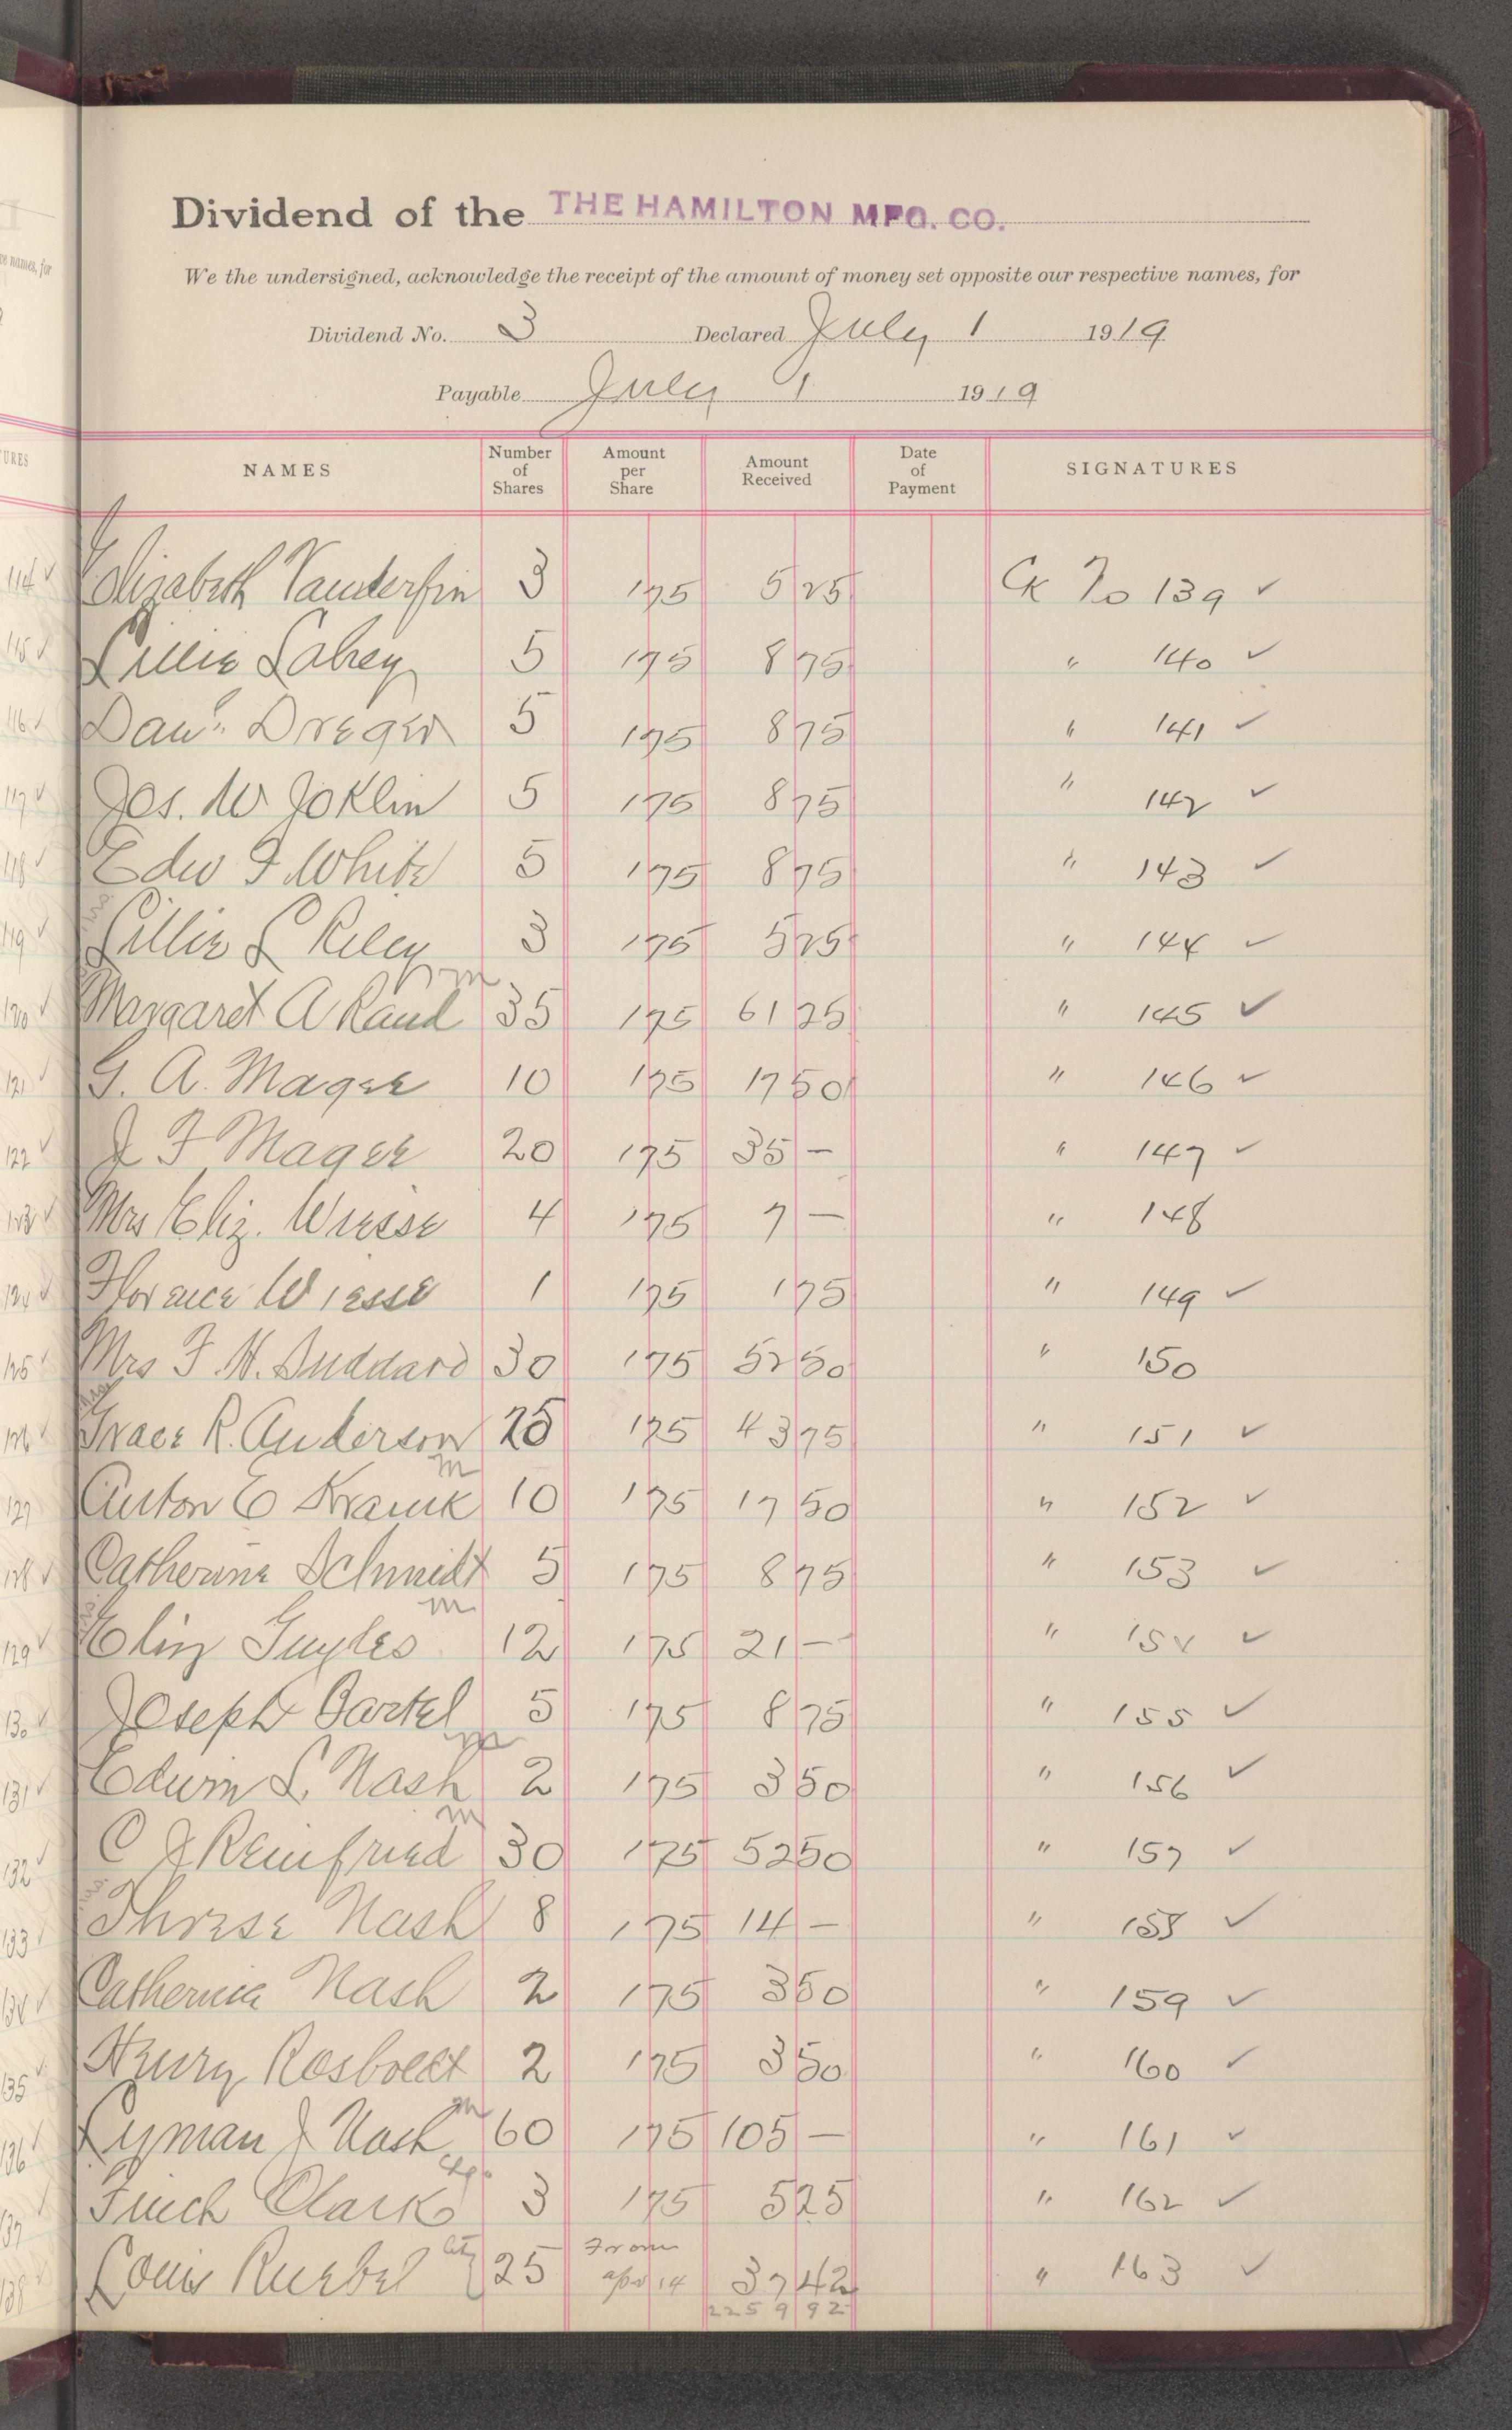 Dividend of the THE HAMILTON MFG. CO.
We the undersigned, acknowledge the receipt of the amount of money set opposite our respective names, for
Dividend No. 3 Declared July 1 1919
Payable July 1 1919
NAMES Number of Shares Amount per Share Amount Received Date of Payment SIGNATURES
Elizabeth Vanderfin 3 1 75 5 25 Ck No 139 ✓
Lillie Lahey 5 1 75 8 75 " 140 ✓
Danl. Dreger 5 1 75 8 75 " 141 ✓
Jos. W Joklin 5 1 75 8 75 " 142 ✓
Edw F White 5 1 75 8 75 " 143 ✓
Mrs Lillie L Riley 3 1 75 5 25 " 144 ✓
Margaret A Rand m 35 1 75 61 25 " 145 ✓
G. A. Magee 10 1 75 17 50 " 146 ✓
J F Magee 20 1 75 35 — " 147 ✓
Mrs Eliz. Wiesse 4 1 75 7 — " 148
Florence Wiesse 1 1 75 1 75 " 149 ✓
Mrs F. H. Suddard 30 1 75 52 50 " 150
Mrs Grace R. Anderson 25 1 75 43 75 " 151 ✓
Anton E Krauk m 10 1 75 17 50 " 152 ✓
Catherine Schmidt 5 1 75 8 75 " 153 ✓
Eliz Guyles m 12 1 75 21 — " 154 ✓
Joseph Bartel 5 1 75 8 75 " 155 ✓
Edwin L. Nash m 2 1 75 3 50 " 156 ✓
C J Reinfried m 30 1 75 52 50 " 157 ✓
Mrs. Threse Nash 8 1 75 14 — " 158 ✓
Catherine Nash 2 1 75 3 50 " 159 ✓
Henry Rosboldt 2 1 75 3 50 " 160 ✓
Lyman J Nash m 60 1 75 105 — " 161 ✓
Finch Clark 3 1 75 5 25 " 162 ✓
Louis Ruebel 25 From Apr 14 37 42 " 163 ✓
2259 92